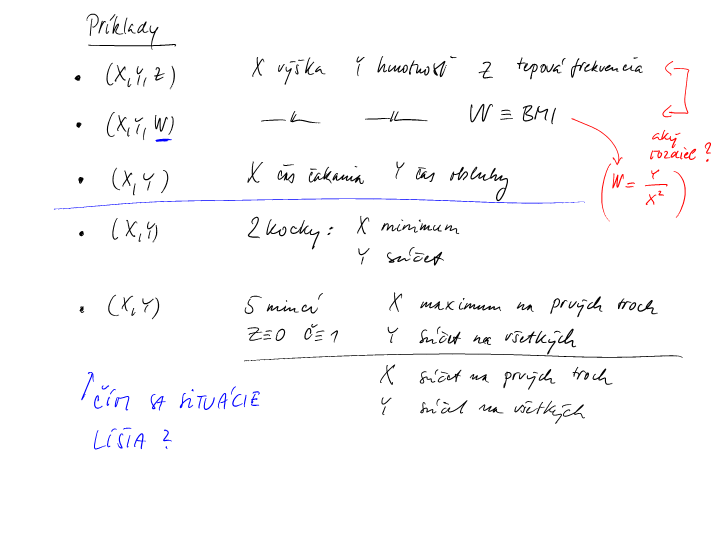 Príklady
• (X,Y,Z) X výška Y hmotnosť Z tepová frekvencia
• (X,Y,W) —〃— —〃— W ≡ BMI
aký
rozdiel ?
(W = Y/X²)
• (X,Y) X čas čakania Y čas obsluhy
• (X,Y) 2 kocky: X minimum
Y súčet
• (X,Y) 5 mincí X maximum na prvých troch
Z≡0 Č≡1 Y súčet na všetkých
X súčet na prvých troch
Y súčet na všetkých
ČÍM SA SITUÁCIE
LÍŠIA ?